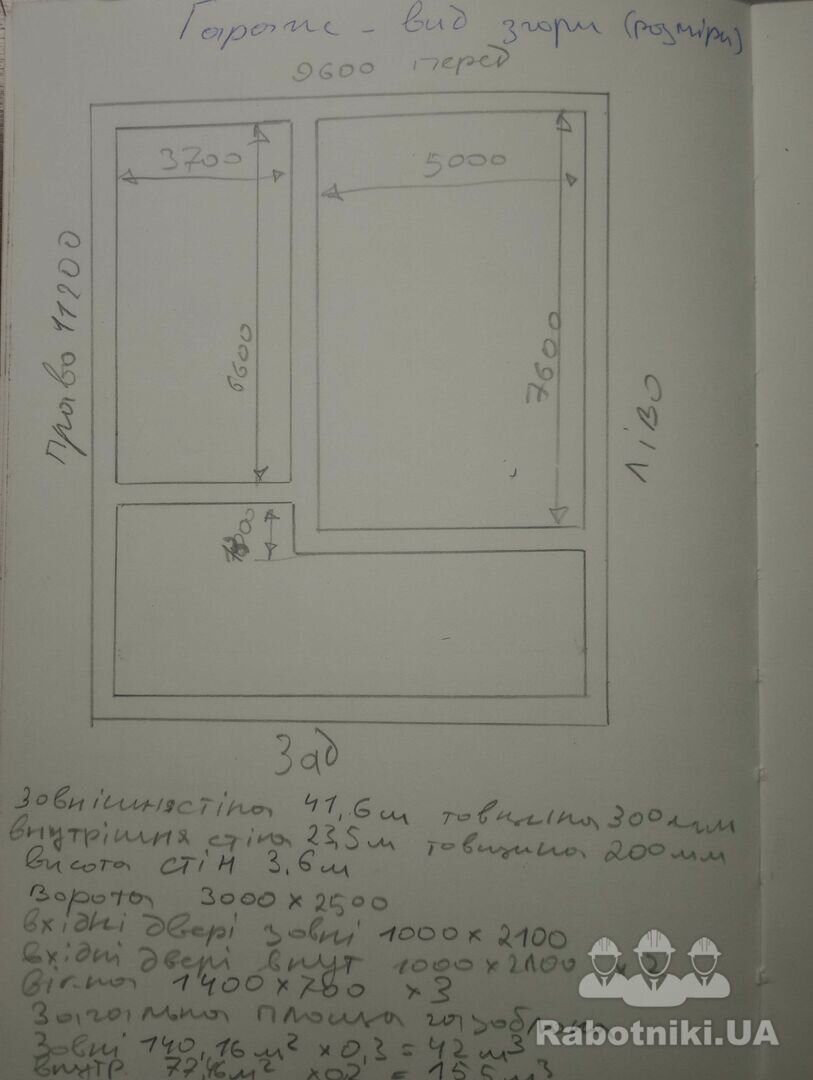 Гараж - вид згори (розміри)
9600 перед
3700
5000
право 11200
6600
7600
ліво
Зад
Зовнішня стіна 41,6м товщина 300мм
внутрішня стіна 23,5м товщина 200мм
висота стін 3,6м
Ворота 3000 × 2500
вхідні двері зовні 1000 × 2100
вхідні двері внут 1000 × 2100 × 2
вікна 1400 × 700 × 3
Загальна площа газоблока
Зовні 140,16м² × 0,3 = 42м³
внутр 77,46м² × 0,2 = 15,5м³
Rabotniki.UA